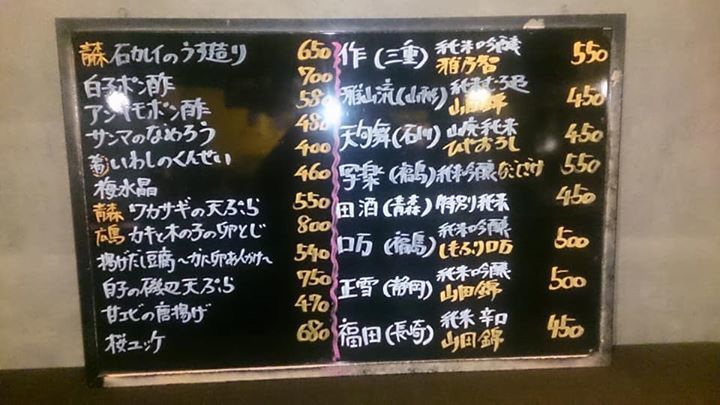 青森 石カレイのうす造り 650
白子ポン酢 700
アンキモポン酢 580
サンマのなめろう 480
いわしのくんせい 400
梅水晶 460
青森 ワカサギの天ぷら 550
広島 カキと木の子の卵とじ 800
揚げだし豆腐〜かに卵あんかけ〜 540
白子の磯辺天ぷら 750
甘エビの唐揚げ 470
桜ユッケ 680
作(三重) 純米吟醸 雅乃智 550
雅山流(山形) 純米むろ過 山田錦 450
天狗舞(石川) 山廃純米 ひやおろし 450
写楽(福島) 純米吟醸 なごしざけ 550
田酒(青森) 特別純米 450
ロ万(福島) 純米吟醸 しもふりロ万 500
正雪(静岡) 純米吟醸 山田錦 500
福田(長崎) 純米 辛口 山田錦 450